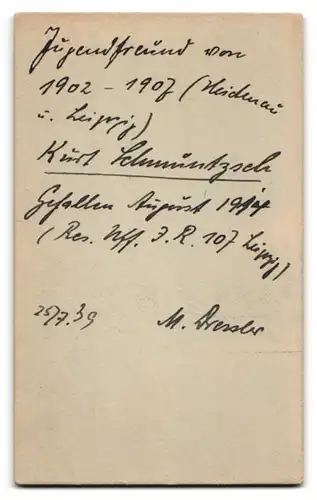 Jugendfreund von
1902 - 1907 (Heidenau
u. Leipzig)
Kurt Schmuntzsch
Gefallen August 1914
(Res. Uff. I. R. 107 Leipzig)
25/7.39 M. Dressler